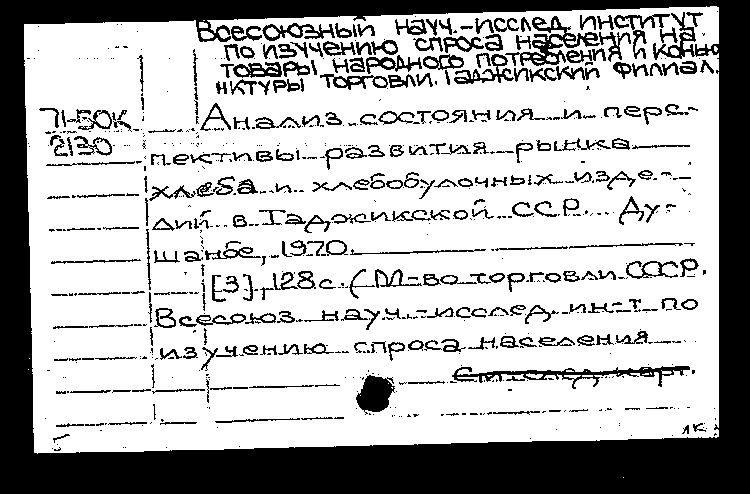 Всесоюзный науч.-исслед. институт
по изучению спроса населения на
товары народного потребления и конъю-
нктуры торговли. Таджикский филиал.
71-50К
2130
Анализ состояния и перс-
пективы развития рынка
хлеба и хлебобулочных изде-
лий в Таджикской ССР. Ду-
шанбе, 1970.
[3], 128 с. (М-во торговли СССР.
Всесоюз. науч.-исслед. ин-т по
изучению спроса населения
см. след. карт.
5 1К